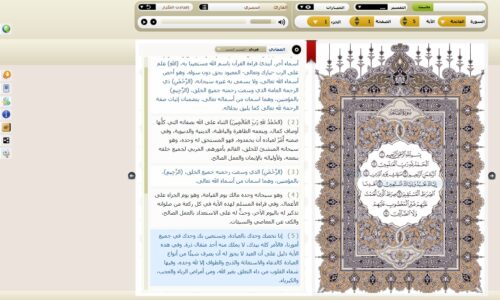 السورة
الفاتحة
الآية
5
الصفحة
1
الجزء
1
التفسير
الميسر
أسماء الله، أبتدئ قراءة القرآن باسم الله مستعينا به، (الله) علم
على الرب -تبارك وتعالى- المعبود بحق دون سواه، وهو أخص
أسماء الله تعالى، ولا يسمى به غيره سبحانه. (الرَّحْمَنِ) ذي
الرحمة العامة الذي وسعت رحمته جميع الخلق، (الرَّحِيمِ)
بالمؤمنين، وهما اسمان من أسمائه تعالى، يتضمنان إثبات صفة
الرحمة لله تعالى كما يليق بجلاله.
(2) (الْحَمْدُ لِلَّهِ رَبِّ الْعَالَمِينَ) الثناء على الله بصفاته التي كلُّها
أوصاف كمال، وبنعمه الظاهرة والباطنة، الدينية والدنيوية، وفي
ضمنه أَمْرٌ لعباده أن يحمدوه، فهو المستحق له وحده، وهو
سبحانه المنشئ للخلق، القائم بأمورهم، المربي لجميع خلقه
بنعمه، ولأوليائه بالإيمان والعمل الصالح.
(3) (الرَّحْمَنِ) الذي وسعت رحمته جميع الخلق، (الرَّحِيمِ)
بالمؤمنين، وهما اسمان من أسماء الله تعالى.
(4) وهو سبحانه وحده مالك يوم القيامة، وهو يوم الجزاء على
الأعمال. وفي قراءة المسلم لهذه الآية في كل ركعة من صلواته
تذكير له باليوم الآخر، وحثٌّ له على الاستعداد بالعمل الصالح،
والكف عن المعاصي والسيئات.
(5) إنا نخصك وحدك بالعبادة، ونستعين بك وحدك في جميع
أمورنا، فالأمر كله بيدك، لا يملك منه أحد مثقال ذرة. وفي هذه
الآية دليل على أن العبد لا يجوز له أن يصرف شيئًا من أنواع
العبادة كالدعاء والاستغاثة والذبح والطواف إلا لله وحده، وفيها
شفاء القلوب من داء التعلق بغير الله، ومن أمراض الرياء والعجب،
والكبرياء.